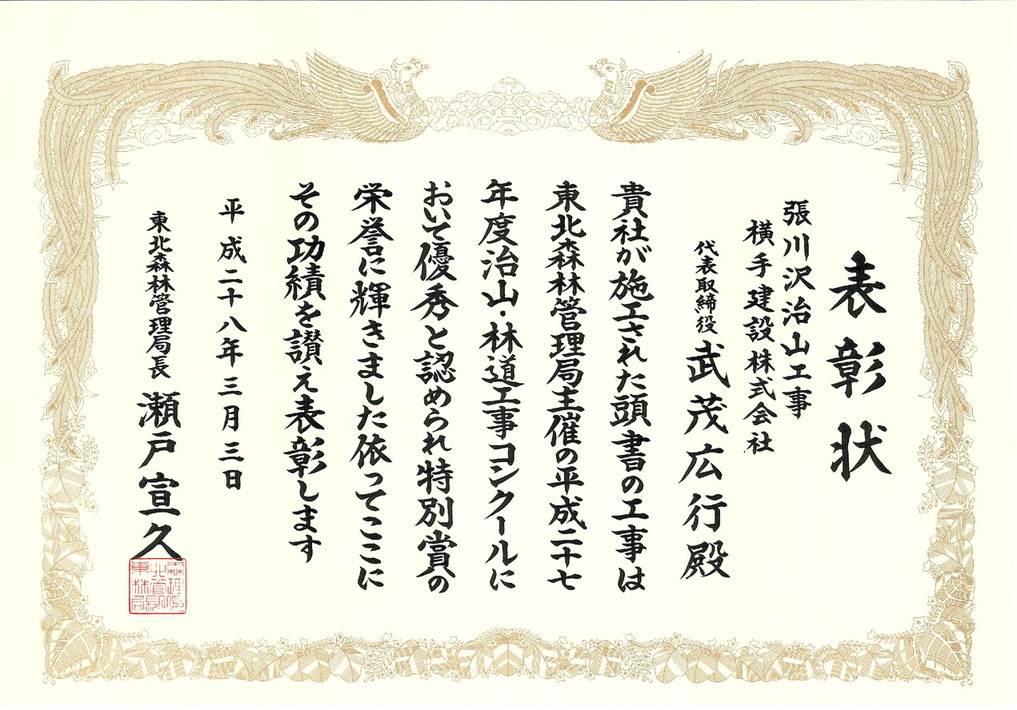 表彰状
張川沢治山工事
横手建設株式会社
代表取締役 武茂広行殿
貴社が施工された頭書の工事は
東北森林管理局主催の平成二十七
年度治山・林道工事コンクールに
おいて優秀と認められ特別賞の
栄誉に輝きました依ってここに
その功績を讃え表彰します
平成二十八年三月三日
東北森林管理局長 瀬戸宣久